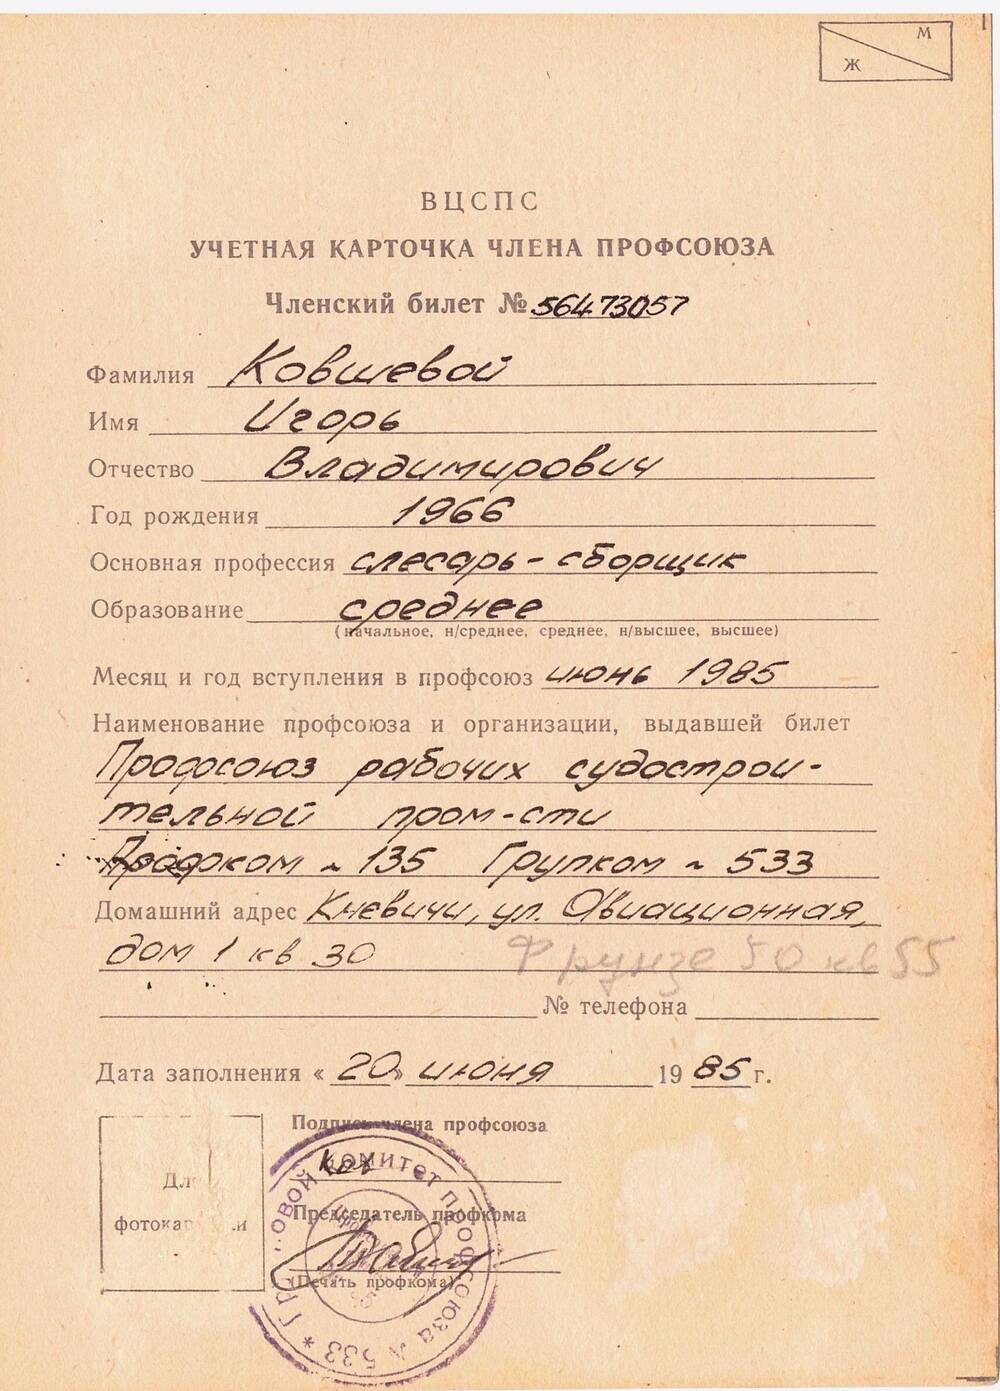 М
Ж
ВЦСПС
УЧЕТНАЯ КАРТОЧКА ЧЛЕНА ПРОФСОЮЗА
Членский билет № 56473057
Фамилия Ковшевой
Имя Игорь
Отчество Владимирович
Год рождения 1966
Основная профессия слесарь-сборщик
Образование среднее
(начальное, н/среднее, среднее, н/высшее, высшее)
Месяц и год вступления в профсоюз июнь 1985
Наименование профсоюза и организации, выдавшей билет
Профсоюз рабочих судострои-
тельной пром-сти
Профком ~ 135 Групком ~ 533
Домашний адрес Кневичи, ул. Авиационная,
дом 1 кв 30 Фрунзе 50 кв 55
№ телефона
Дата заполнения « 20 » июня 1985 г.
Подпись члена профсоюза
Ков
Для
фотокарточки
Председатель профкома
(Печать профкома)
КОМИТЕТ ПРОФСОЮЗА № 533 *